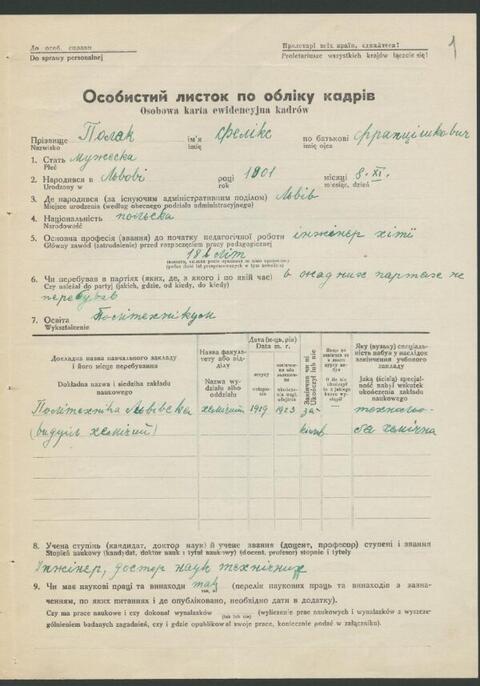 До особ. справи
Do sprawy personalnej
Пролетарі всіх країн, єднайтеся!
Proletariusze wszystkich krajów łączcie się!
1
Особистий листок по обліку кадрів
Osobowa karta ewidencyjna kadrów
Прізвище Поляк ім'я Фелікс по батькові Францішкович
Nazwisko imię imię ojca
1. Стать мужеска
Płeć
2. Народився в Львові році 1901 місяці 8. XI.
Urodzony w rok miesiąc, dzień
3. Де народився (за існуючим адміністративним поділом) Львів
Miejsce urodzenia (według obecnego podziału administracyjnego)
4. Національність польска
Narodowość
5. Основна професія (звання) до початку педагогічної роботи інжінер хімії
Główny zawód (zatrudnienie) przed rozpoczęciem pracy pedagogicznej
18 літ
6. Чи перебував в партіях (яких, де, з якого і по який час) в жадних партіях не
Czy należał do partyj (jakich, gdzie, od kiedy, do kiedy)
перебував
7. Освіта Політехнікум
Wykształcenie
Докладна назва навчального закладу і його місце перебування
Dokładna nazwa i siedziba zakładu naukowego
Назва факультету або відділу
Nazwa wydziału albo oddziału
Дата (м-ць, рік)
Data m. r.
вступу
Закінчив чи ні
Ukończył lub nie
Яку (вузьку) спеціальність набув у наслідок закінчення учбового закладу
Jaką (ściśle) specjalność nabył wskutek ukończenia zakładu naukowego
Політехніка Львівска хемічний 1919 1923 за- техноло-
(виділ хемічний) кінчив гія хемічна
8. Учена ступінь (кандидат, доктор наук) й учене звання (доцент, професор) ступені і звання
Stopień naukowy (kandydat, doktor nauk i tytuł naukowy) (docent, profesor) stopnie i tytuły
Інжінер, доктор наук технічних
9. Чи має наукові праці та винаходи так (перелік наукових праць та винаходів з зазна-
ченням, по яких питаннях і де опубліковано, необхідно дати в додатку).
Czy ma prace naukowe i czy dokonał wynalazków (tak lub nie) (wyliczenie prac naukowych i wynalazków z wyszcze-
gólnieniem badanych zagadnień, czy i gdzie opublikował swoje prace, koniecznie podać w załączniku).